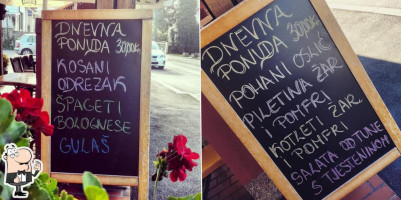 DNEVNA
PONUDA 30pok.
KOSANI
ODREZAK
ŠPAGETI
BOLOGNESE
GULAŠ
DNEVNA
PONUDA 30pok.
POHANI OSLIĆ
PILETINA ŽAR
I POMFRI
KOTLETI ŽAR
I POMFRI
SALATA OD TUNE
S TJESTENINOM